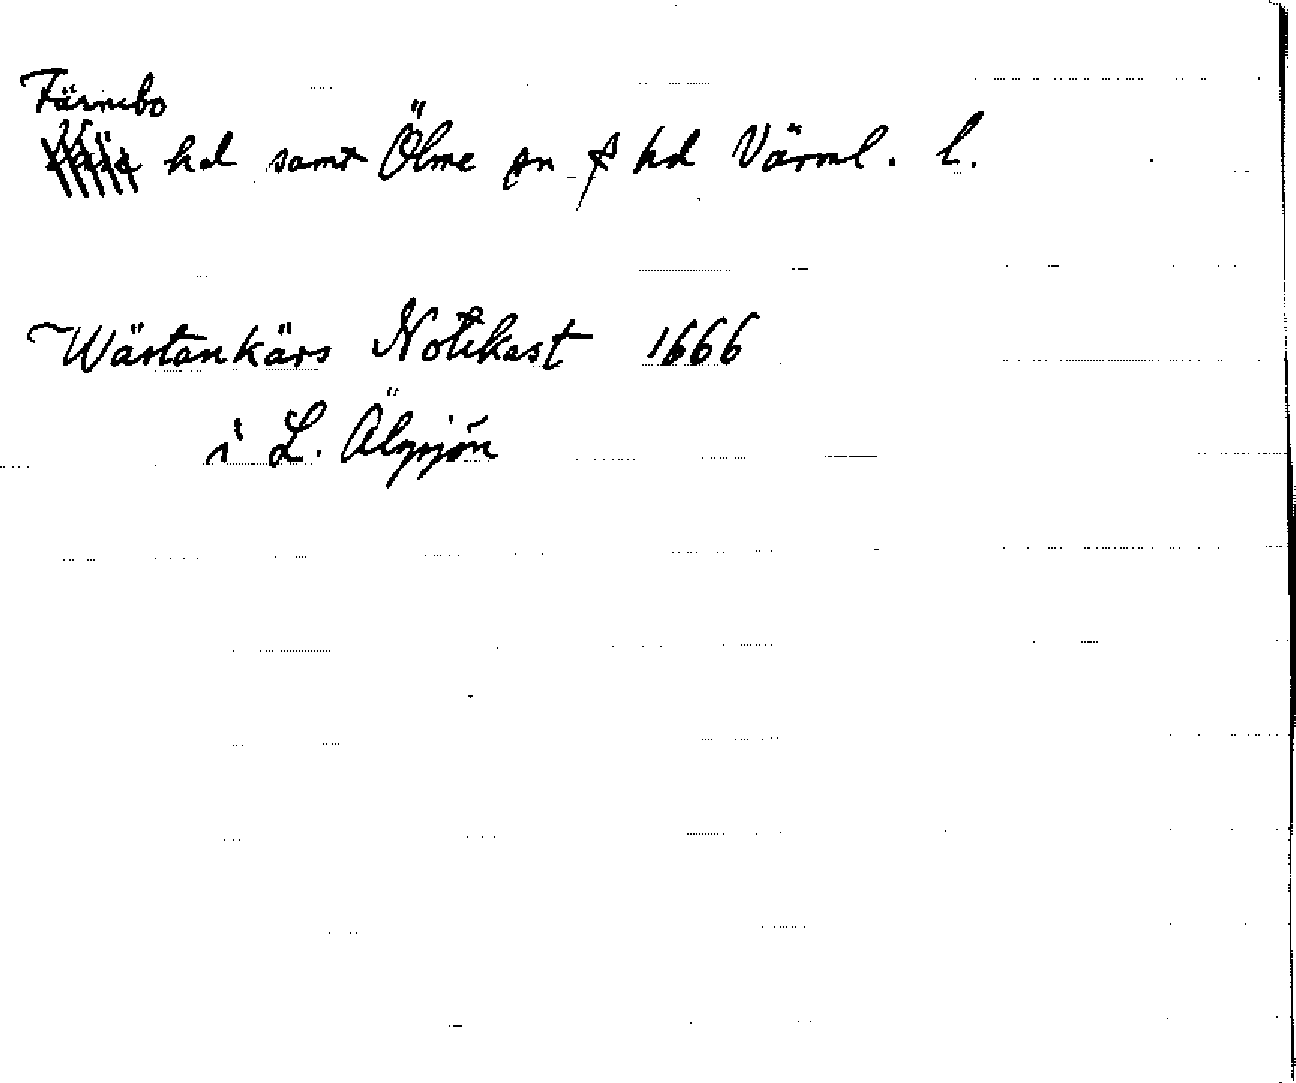 Färnebo
hd samt Ölme sn f hd Värml. l.
Wästankärs Notekast 1666
i L. Älgsjön